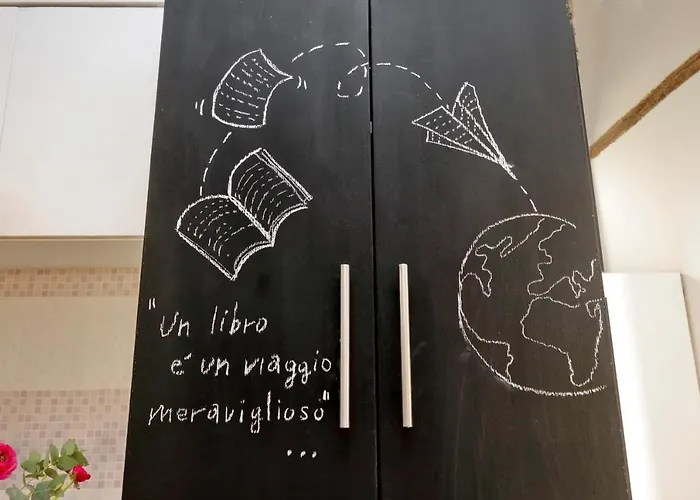 "Un libro
é un viaggio
meraviglioso"
...